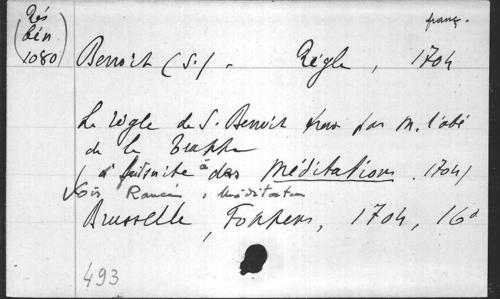 franç.
(Rés
bén.
1080)
Benoît (S.). Règle, 1704
La règle de S. Benoît trad par M. l'abé
de la Trappe
(à la suite des Méditations. 1704)
Voir Rancé, Méditation
Bruxelle, Foppens, 1704, 16°
493